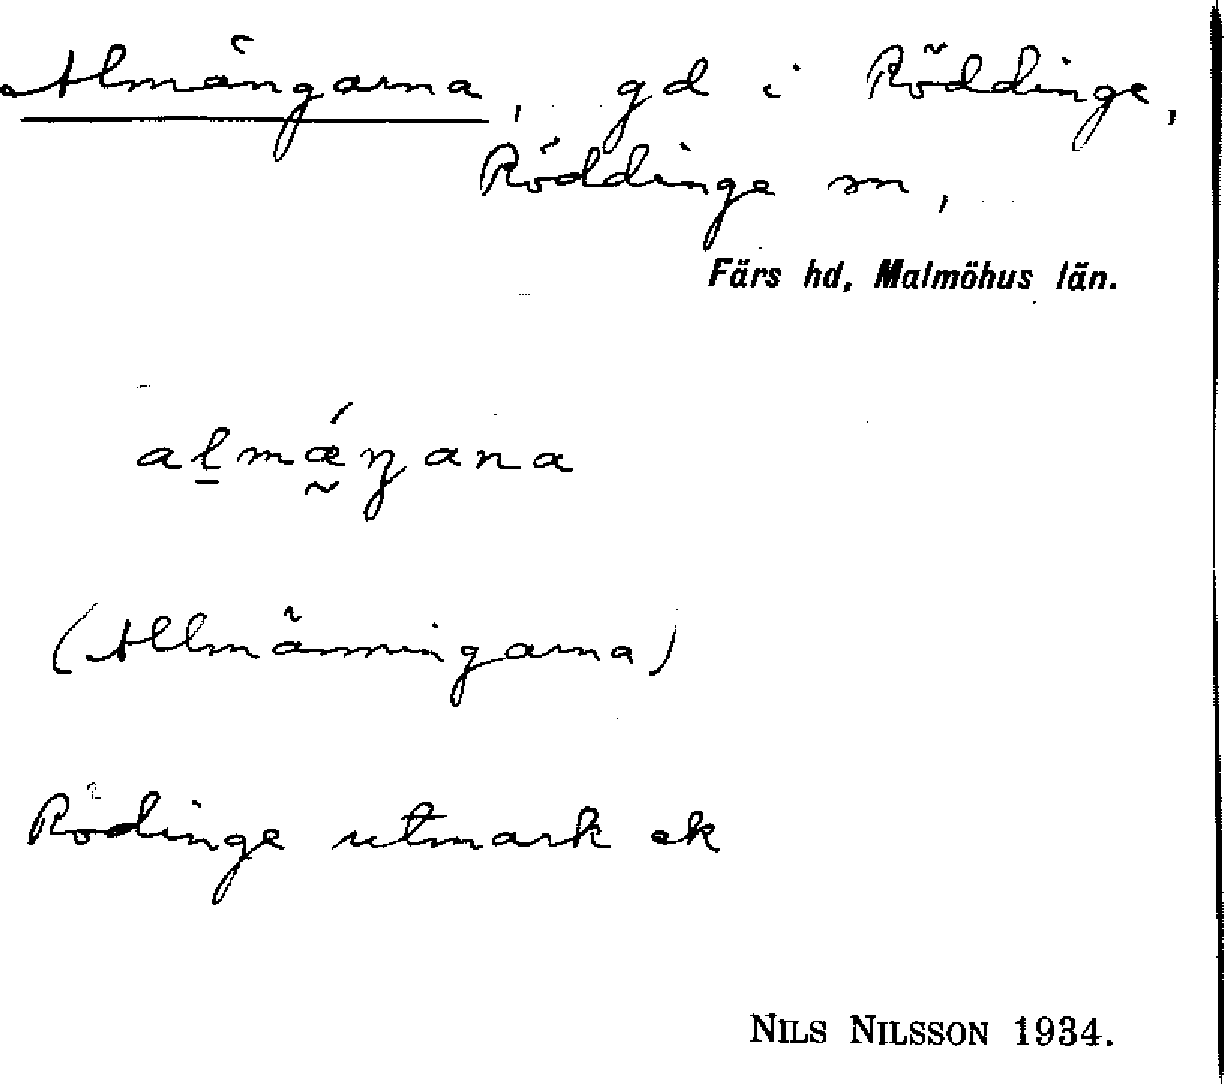 Almängarna, gd i Röddinge,
Röddinge sn,
Färs hd, Malmöhus län.
aḻmǽ̰ŋana
(Allmänningarna)
Rödinge utmark ek
NILS NILSSON 1934.